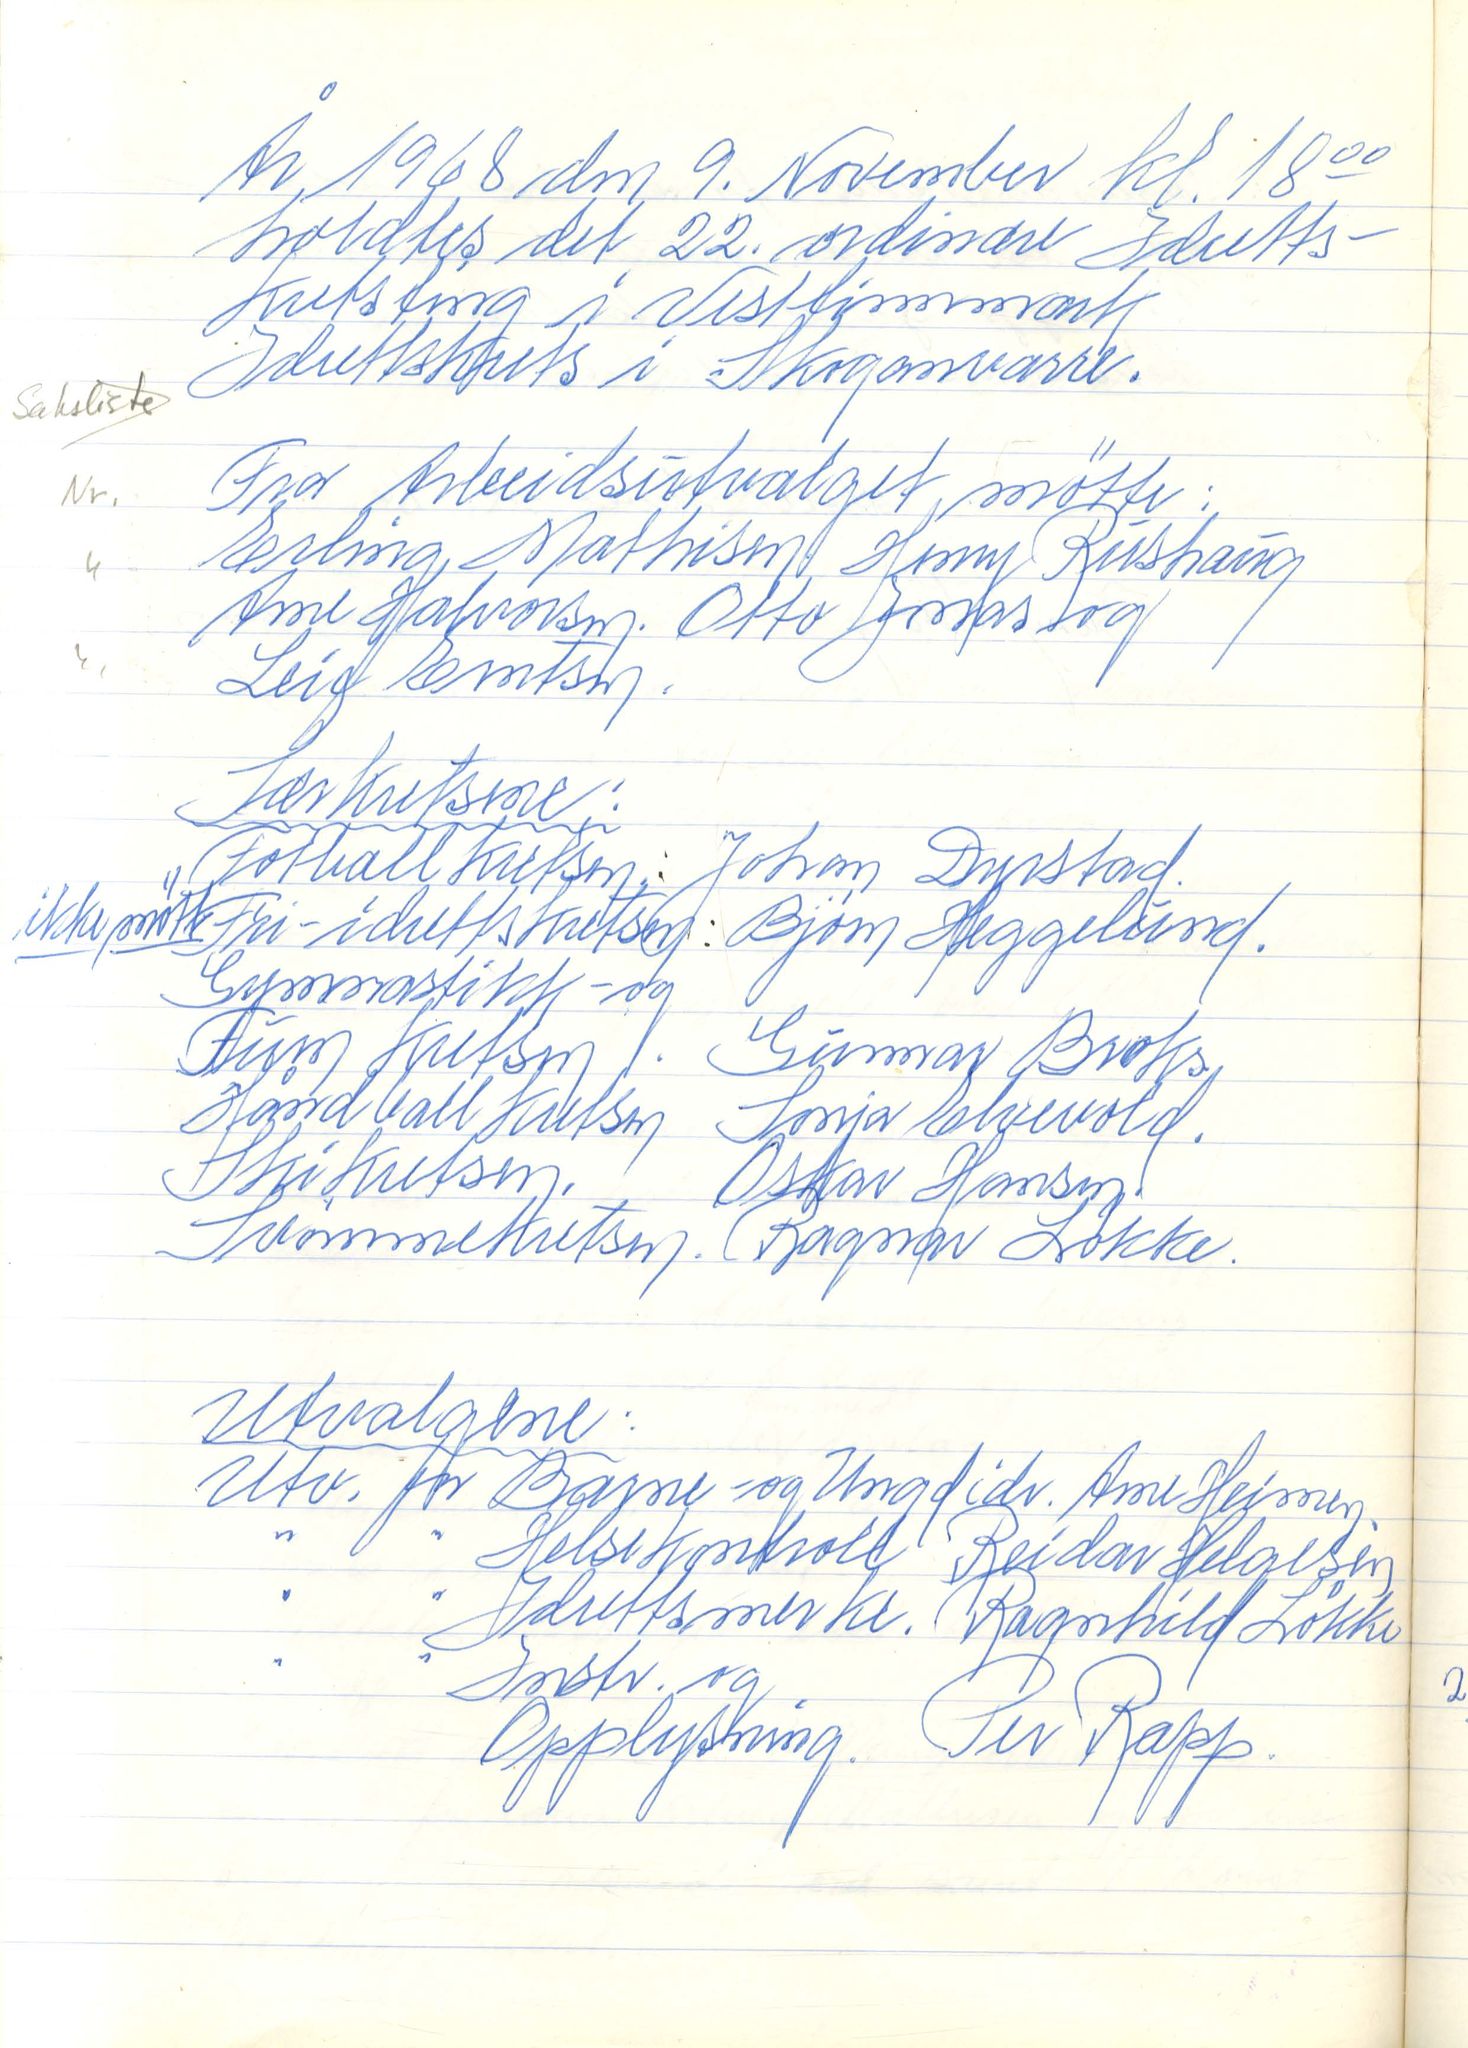 År 1968 den 9. November kl. 18 00
holdtes det 22. ordinære Idretts-
kretsting i Vestfinnmark
Idrettskrets i Skoganvarre.
Saksliste
Nr. Fra Arbeidsutvalget mötte:
" Erling Mathisen Henry Rushaug
Arne Halvorsen. Otto Jonas og
". Leif Erntsen.
Særkretsene:
Fotballkretsen: Johan Dyrstad.
ikke mött Fri-idrettskretsen: Björn Heggelund.
Gymnastikk-og
Turn kretsen. Gunnar Broks
Håndballkretsen Sonja Elvevold.
Skikretsen. Oskar Hansen.
Svömmekretsen. Ragnar Lökke.
Utvalgene:
Utv. for Barne-og Ungd idr. Arne Heimen.
" " Helsekontroll Reidar Helgesen
" " Idrettsmerke. Ragnhild Lökke
" " Instr. og
Opplysning. Per Rapp.
2